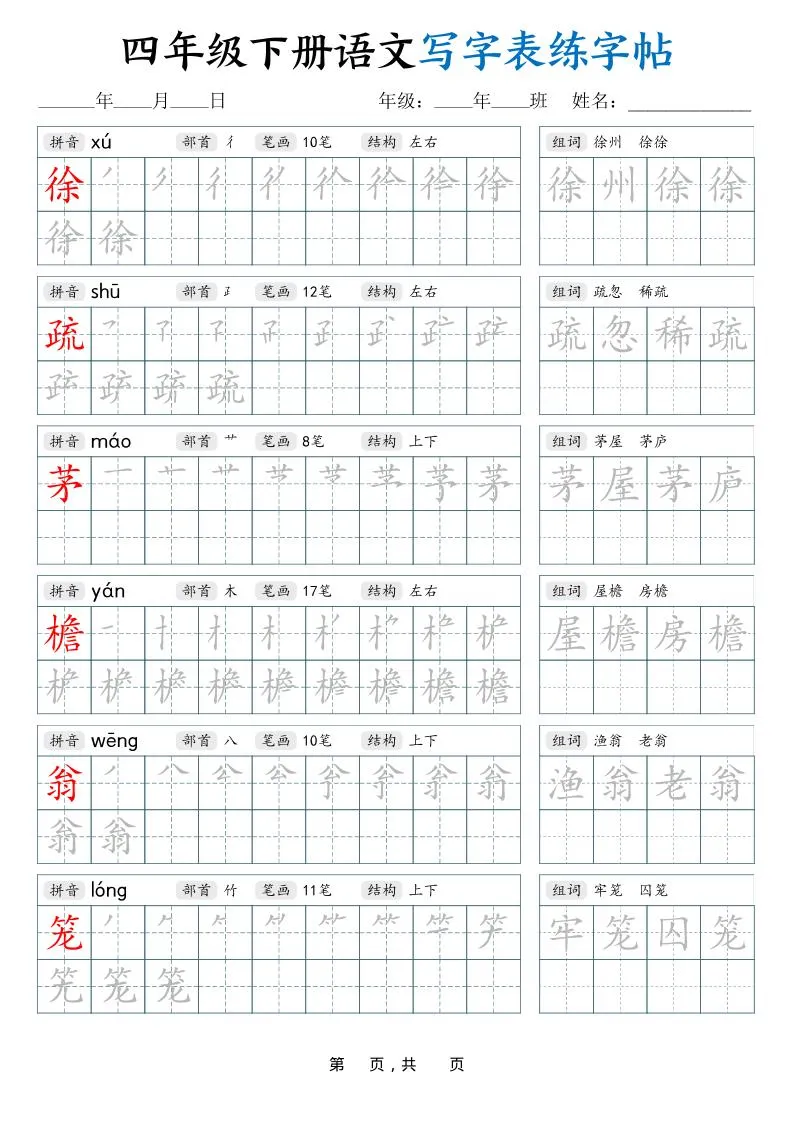 四年级下册语文写字表练字帖
______年____月____日 年级：____年____班 姓名：____________
拼音 xú 部首 彳 笔画 10笔 结构 左右 组词 徐州 徐徐
徐 徐州徐徐
徐
拼音 shū 部首 𤴔 笔画 12笔 结构 左右 组词 疏忽 稀疏
疏 疏忽稀疏
疏
拼音 máo 部首 艹 笔画 8笔 结构 上下 组词 茅屋 茅庐
茅 茅 茅屋茅庐
拼音 yán 部首 木 笔画 17笔 结构 左右 组词 屋檐 房檐
檐 屋檐房檐
檐
拼音 wēng 部首 八 笔画 10笔 结构 上下 组词 渔翁 老翁
翁 渔翁老翁
翁
拼音 lóng 部首 竹 笔画 11笔 结构 上下 组词 牢笼 囚笼
笼 牢笼囚笼
笼
第 页，共 页